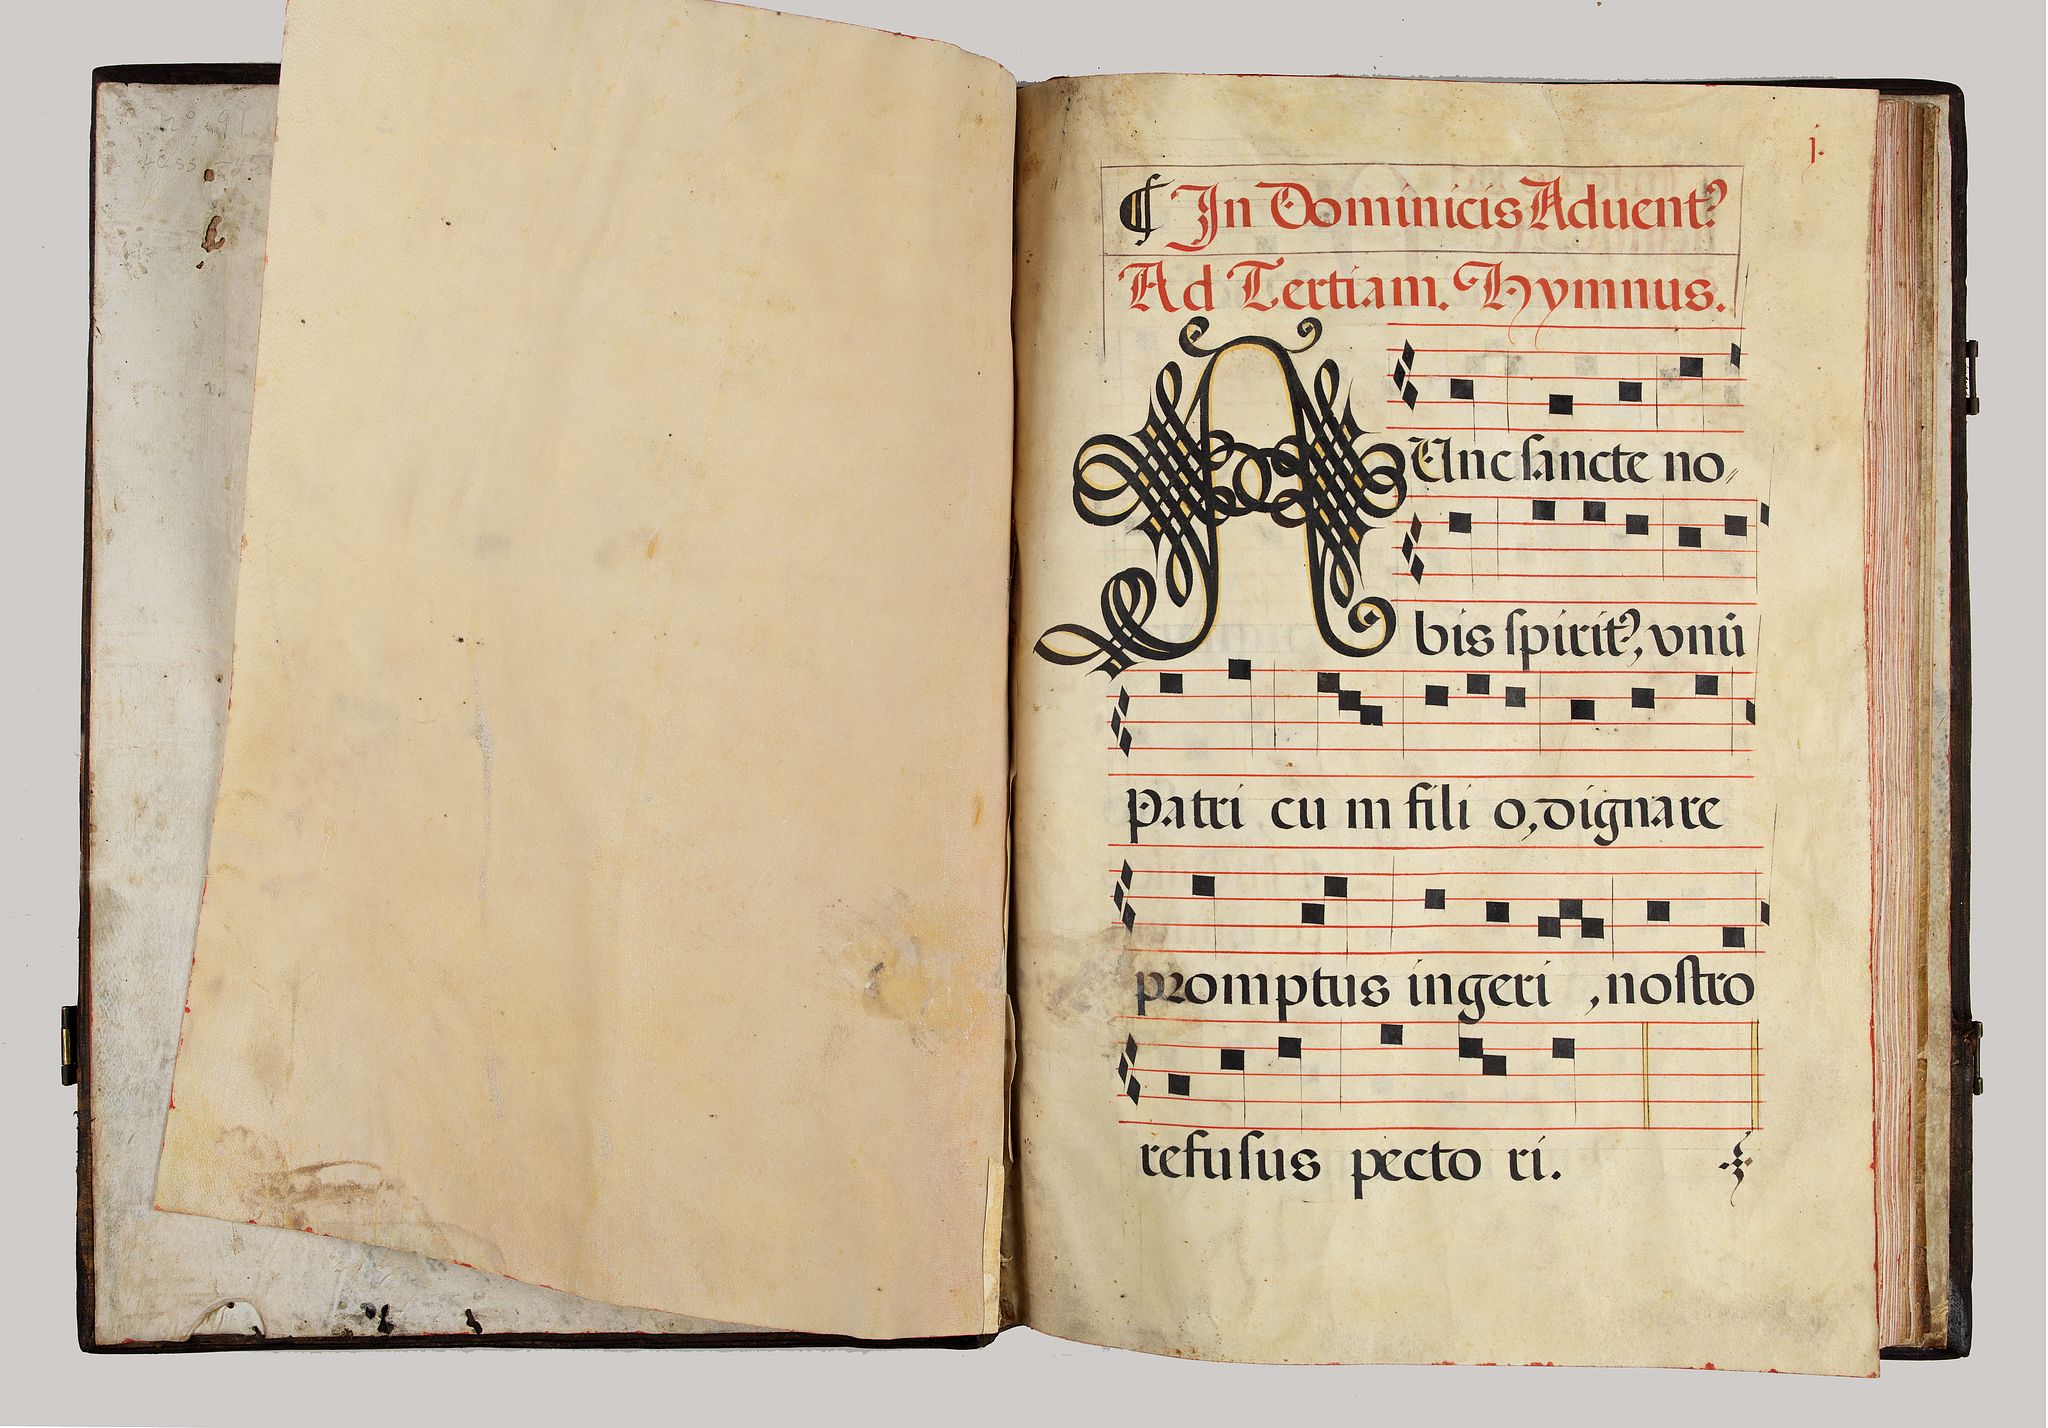 j.
¶ In Dominicis Aduentꝰ
Ad Tertiam. Hymnus.
NUnc sancte no⸗
bis spiritꝰ, vnū
Patri cu m fili o, dignare
promptus ingeri , nostro
refusus pecto ri.